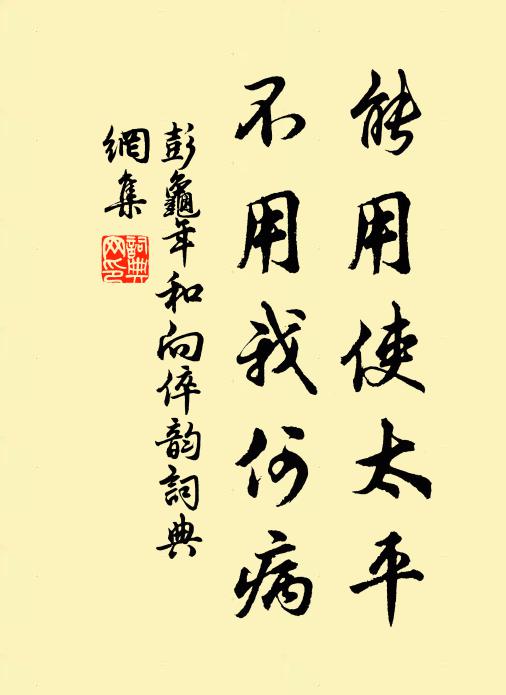 能用使太平
不用我何病
彭龜年和向倅韵詞典
網集
詞典
网印